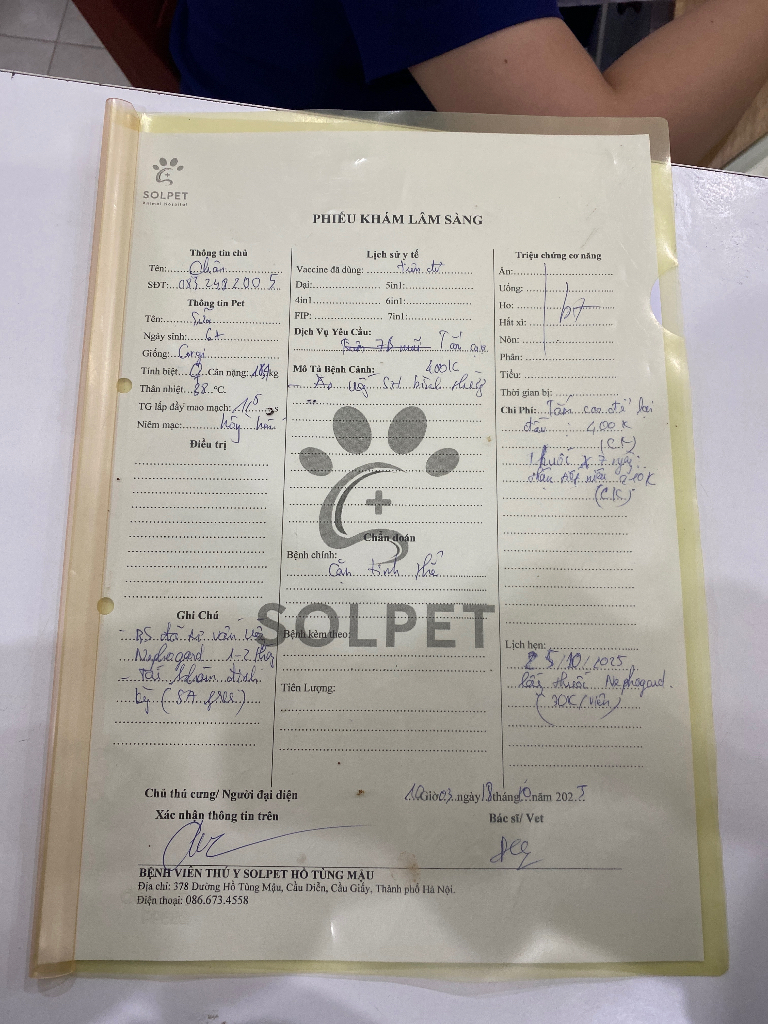 SOLPET
Animal Hospital
PHIẾU KHÁM LÂM SÀNG
Thông tin chủ
Tên:
SĐT:
Thông tin Pet
Tên: Sữa
Ngày sinh: 6t
Giống: Corgi
Tính biệt: Cân nặng: kg
Thân nhiệt: 38 °C
TG lấp đầy mao mạch: 1,5 s
Niêm mạc: hồng
Điều trị
Ghi Chú
- BS đã tư vấn
Nephogard 1-2
- Tái khám định
kỳ (SA free)
Lịch sử y tế
Vaccine đã dùng:
Dại: 5in1:
4in1 6in1:
FIP: 7in1:
Dịch Vụ Yêu Cầu:
Mô Tả Bệnh Cảnh: 400K
- Ăn uống SH bình thường
Chẩn đoán
Bệnh chính:
SOLPET
Bệnh kèm theo:
Tiên Lượng:
Triệu chứng cơ năng
Ăn:
Uống:
Ho: bt
Hắt xì:
Nôn:
Phân:
Tiểu:
Thời gian bị:
Chi Phí: để lại
đầu : 400K
(CK)
Thuốc x 7 ngày:
210K
(CK)
Lịch hẹn:
25/10/2025
lấy thuốc Nephogard.
(30K/viên)
Chủ thú cưng/ Người đại diện
Xác nhận thông tin trên
giờ 03 ngày 18 tháng 10 năm 2025
Bác sĩ/ Vet
BỆNH VIỆN THÚ Y SOLPET HỒ TÙNG MẬU
Địa chỉ: 378 Đường Hồ Tùng Mậu, Cầu Diễn, Cầu Giấy, Thành phố Hà Nội.
Điện thoại: 086.673.4558